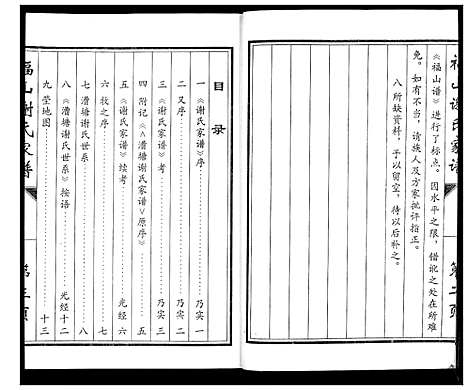 福山谢氏家谱
第二页
《福山谱》进行了标点。因水平之限，错讹之处在所难
免。如有不当，请族人及方家批评指正。
八 所缺资料，予以留空，待以后补之。
目录
一 《谢氏家谱》序……乃实 一
二 又序……乃实 二
三 《谢氏家谱》考……乃实 三
四 附记《∧漕塘谢氏家谱∨原序》……五
五 《谢氏家谱》续考……光经 六
六 牧之序……七
七 漕塘谢氏世系……八
八 《漕塘谢氏世系》按语……光经 十二
九 茔地图……十三
福山谢氏家谱
第三页